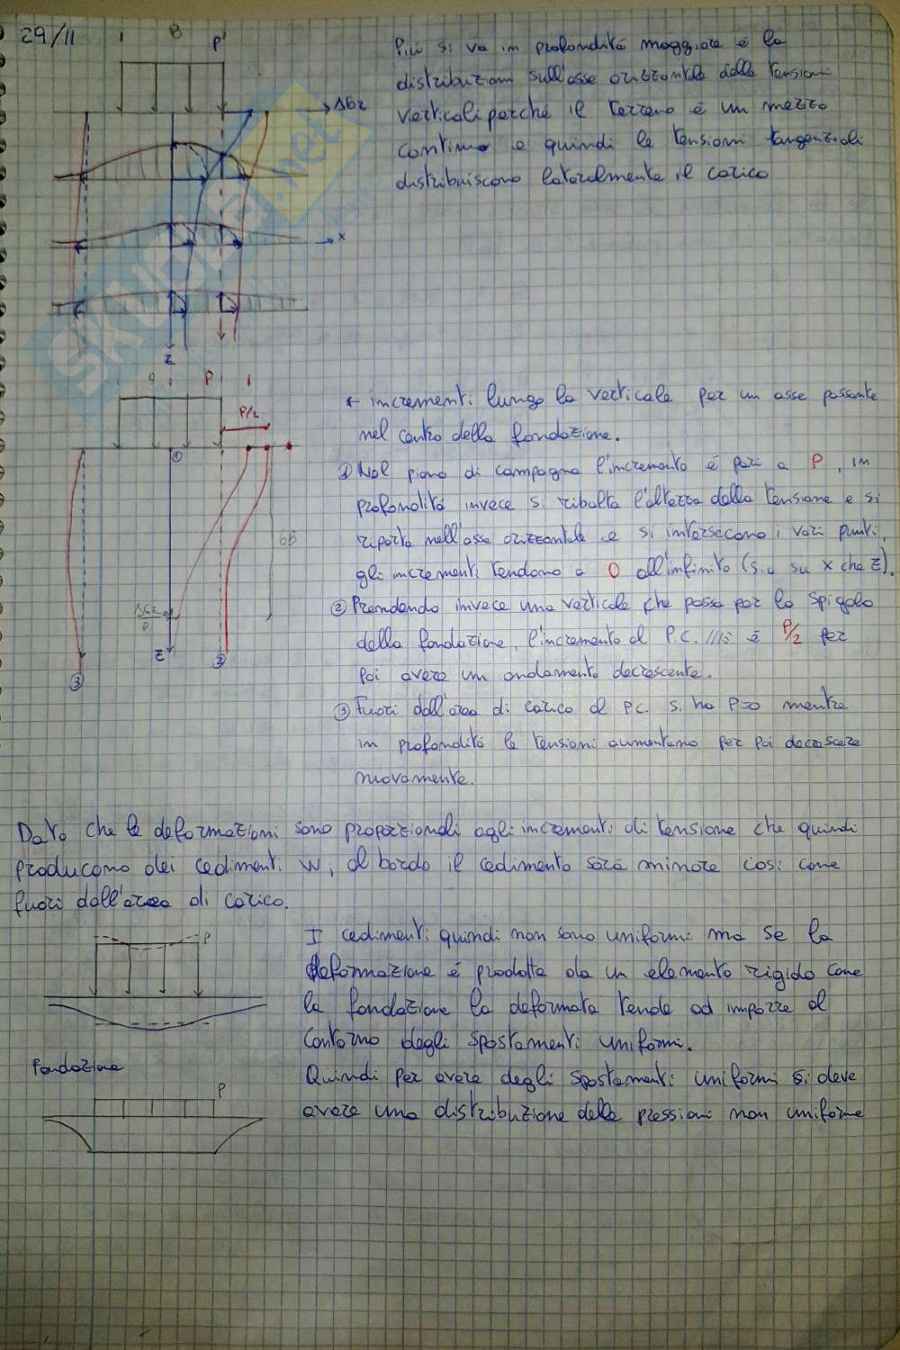 29/11
B
P'
Δσz
x
z
Più si va in profondità maggiore è la
distribuzioni sull'asse orizzontale delle tensioni
verticali perché il terreno è un mezzo
continuo e quindi le tensioni tangenziali
distribuiscono lateralmente il carico
SKUOLA.net
q
P
P/2
①
6B
z
②
③
* incrementi lungo la verticale per un asse passante
nel centro della fondazione.
① Nel piano di campagna l'incremento è pari a P, in
profondità invece si ribalta l'altezza della tensione e si
riporta nell'asse orizzontale e si intersecano i vari punti,
gli incrementi tendono a 0 all'infinito (sia su x che z).
② Prendendo invece una verticale che passa per lo spigolo
della fondazione, l'incremento al P.C. è P/2 per
poi avere un andamento decrescente.
③ Fuori dall'area di carico al P.C. si ha P=0 mentre
in profondità le tensioni aumentano per poi decrescere
nuovamente.
Dato che le deformazioni sono proporzionali agli incrementi di tensione che quindi
producono dei cedimenti w, al bordo il cedimento sarà minore così come
fuori dall'area di carico.
P
I cedimenti quindi non sono uniformi ma se la
deformazione è prodotta da un elemento rigido come
la fondazione la deformata tende ad imporre al
contorno degli spostamenti uniformi.
Fondazione
P
Quindi per avere degli spostamenti uniformi si deve
avere una distribuzione delle pressioni non uniforme